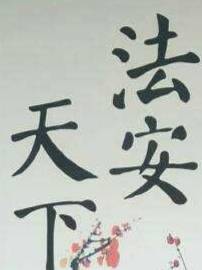 法安
天下